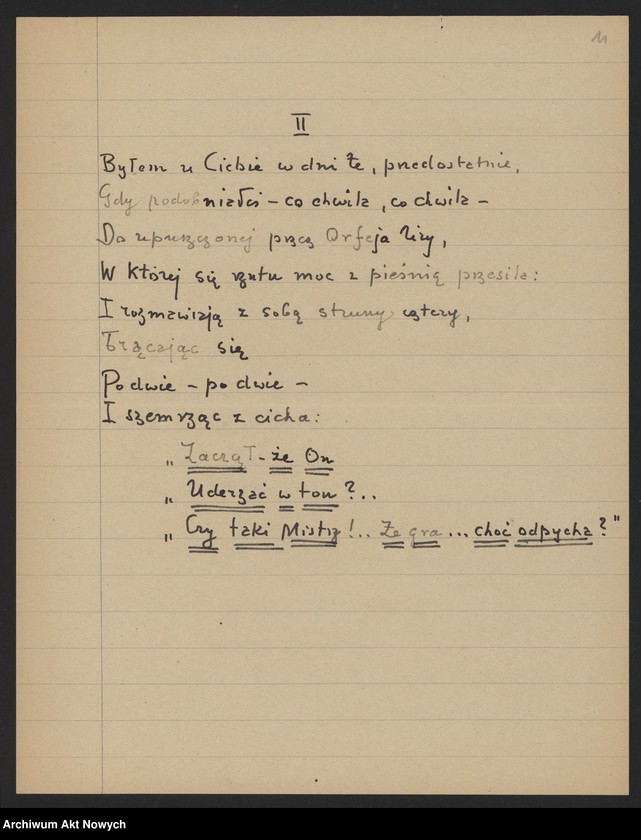 11
II
Byłem u Ciebie w dni te, przedostatnie,
Gdy podobniałeś – co chwila, co chwila –
Do upuszczonej przez Orfeja liry,
W której się rzutu moc z pieśnią przesila:
I rozmawiają z sobą struny cztery,
Trącając się
Po dwie – po dwie –
I szemrząc z cicha:
„Zaczął-że On
„Uderzać w ton?..
„Czy taki Mistrz!.. Że gra... choć odpycha?"
Archiwum Akt Nowych